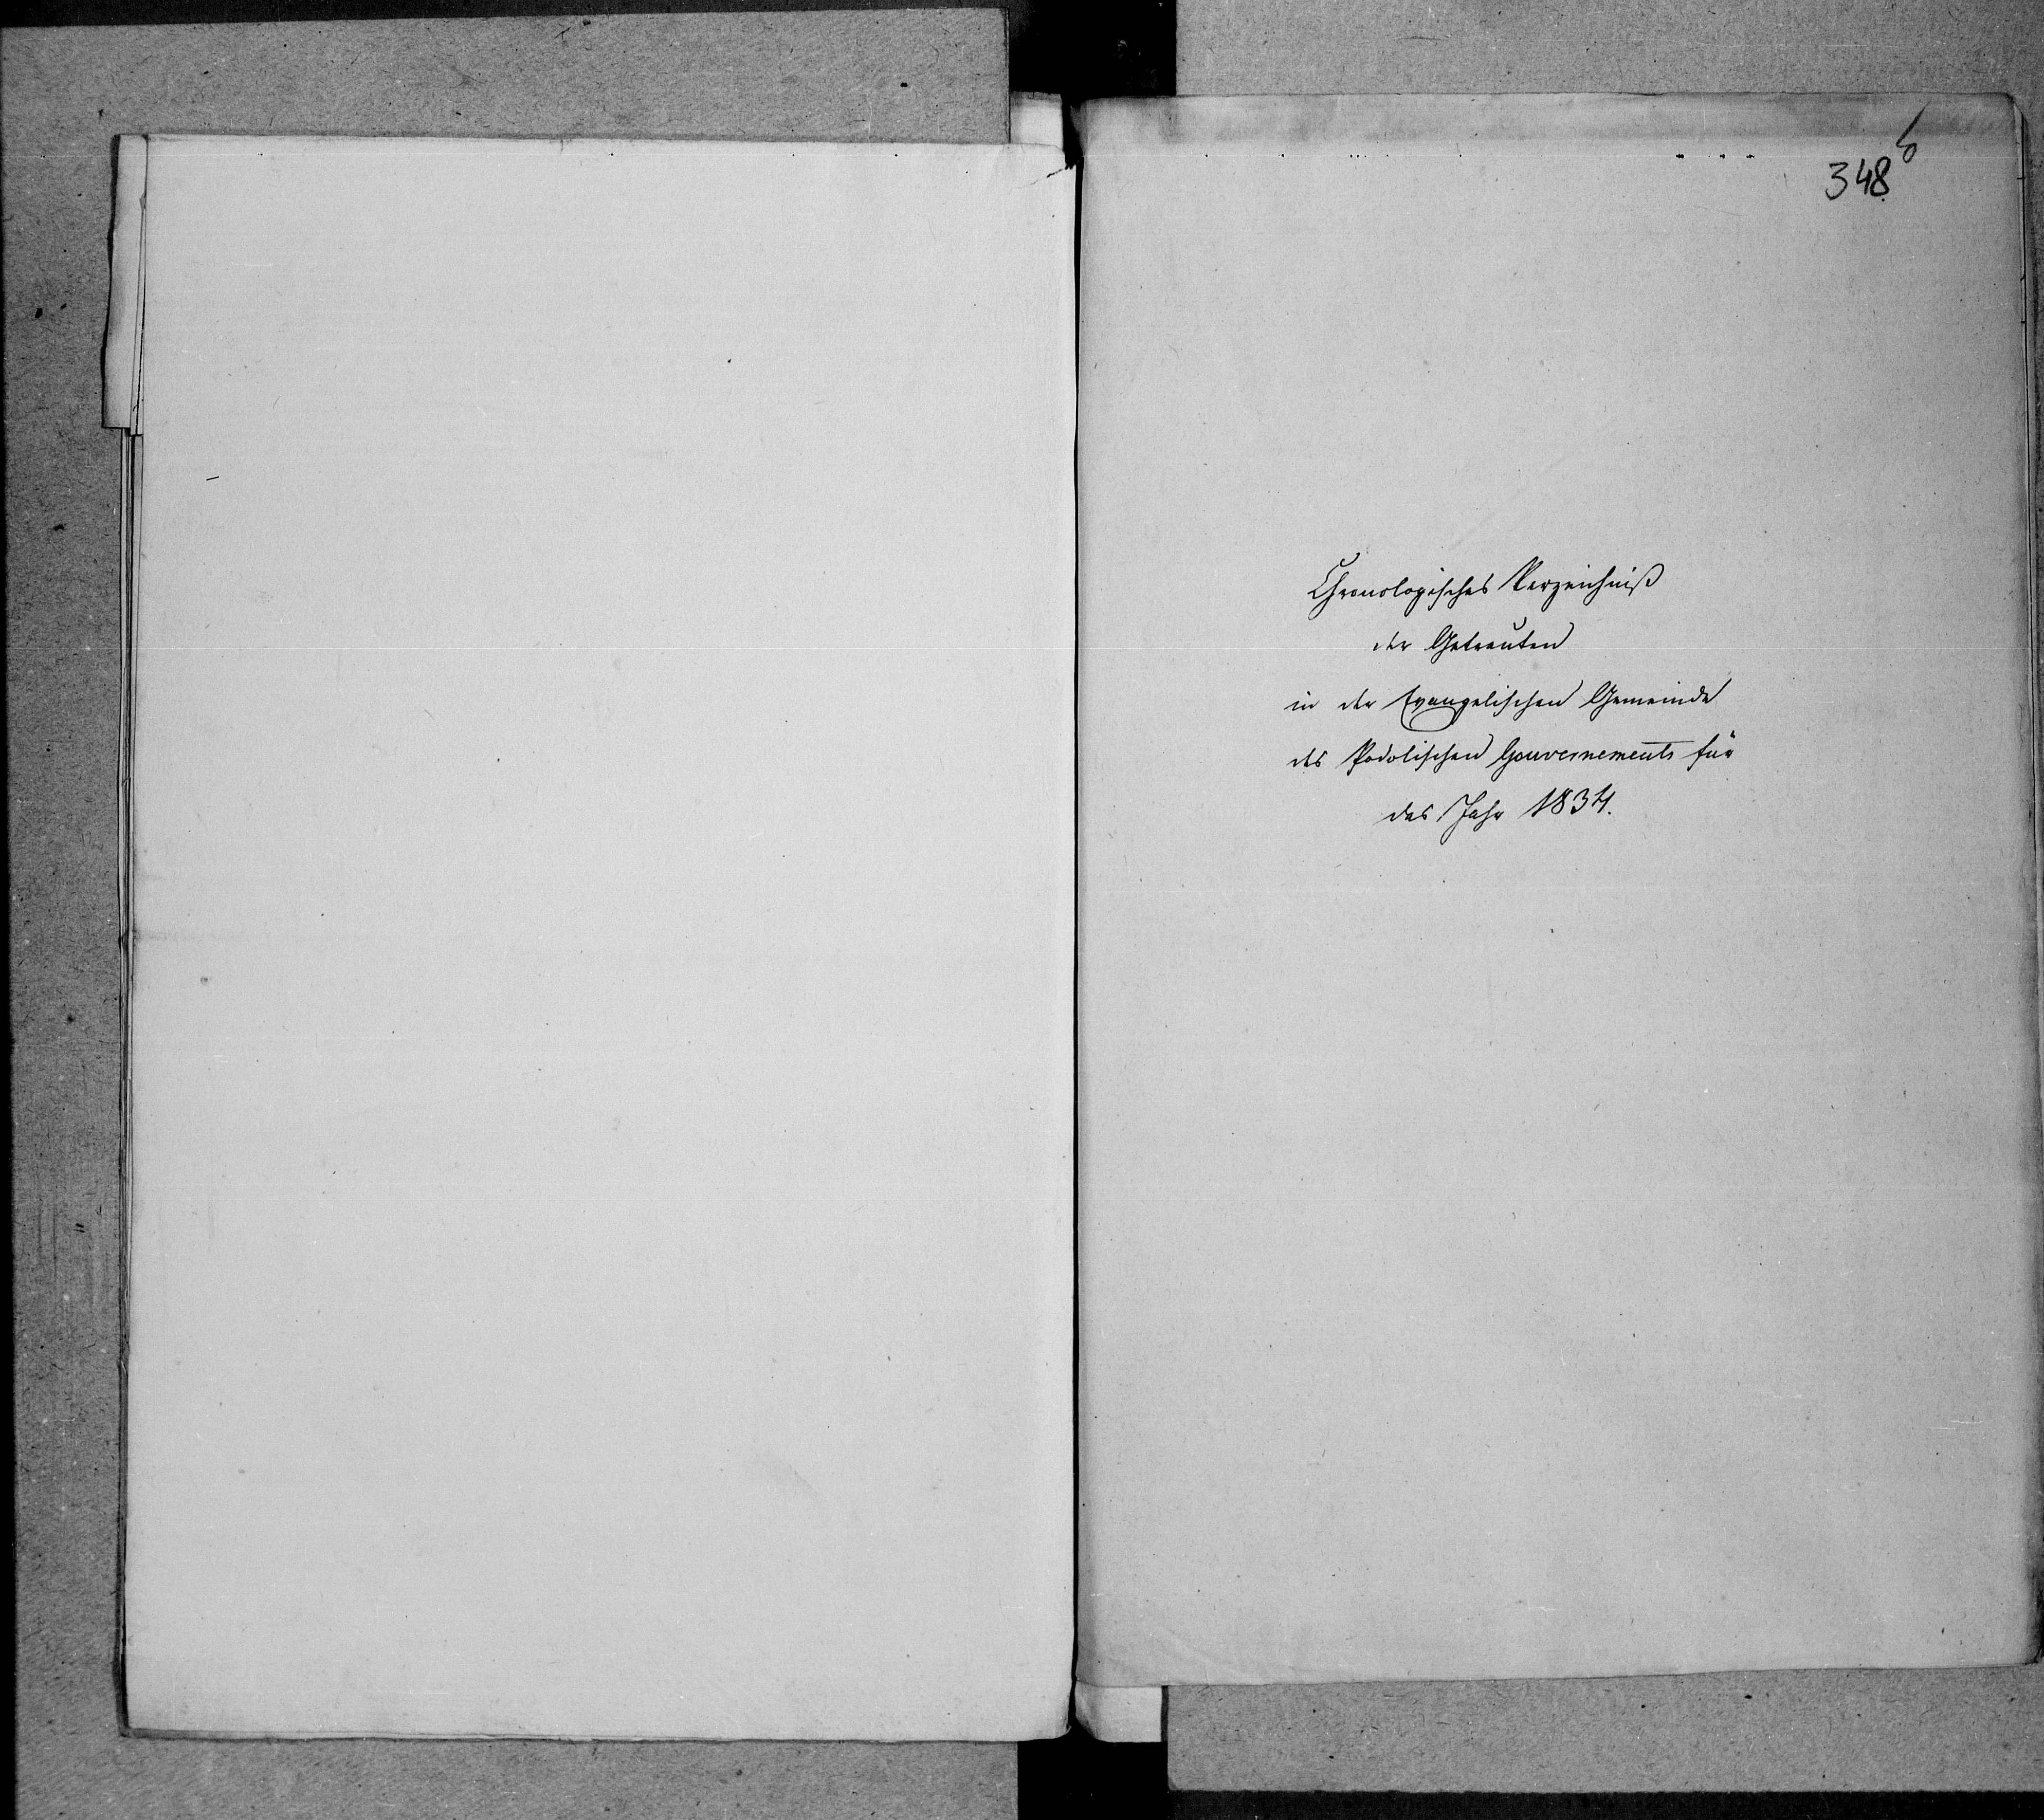 348
6
Chronologisches Verzeichniß
der Getrauten
in der Evangelischen Gemeinde
des Podolischen Gouvernements für
das Jahr 1834.